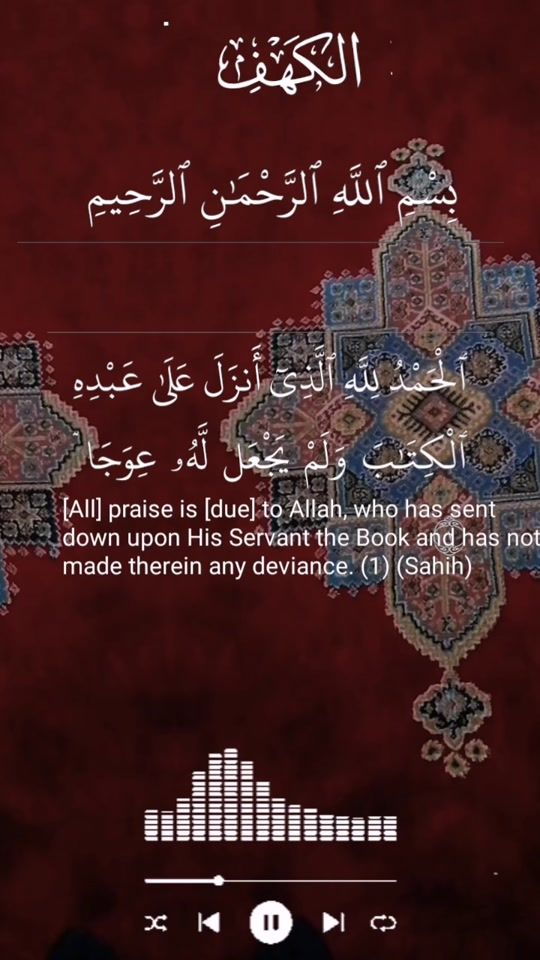 الكهف
بِسْمِ ٱللَّهِ ٱلرَّحْمَـٰنِ ٱلرَّحِيمِ
ٱلْحَمْدُ لِلَّهِ ٱلَّذِىٓ أَنزَلَ عَلَىٰ عَبْدِهِ
ٱلْكِتَـٰبَ وَلَمْ يَجْعَل لَّهُۥ عِوَجَا ۜ
[All] praise is [due] to Allah, who has sent
down upon His Servant the Book and has not
made therein any deviance. (1) (Sahih)